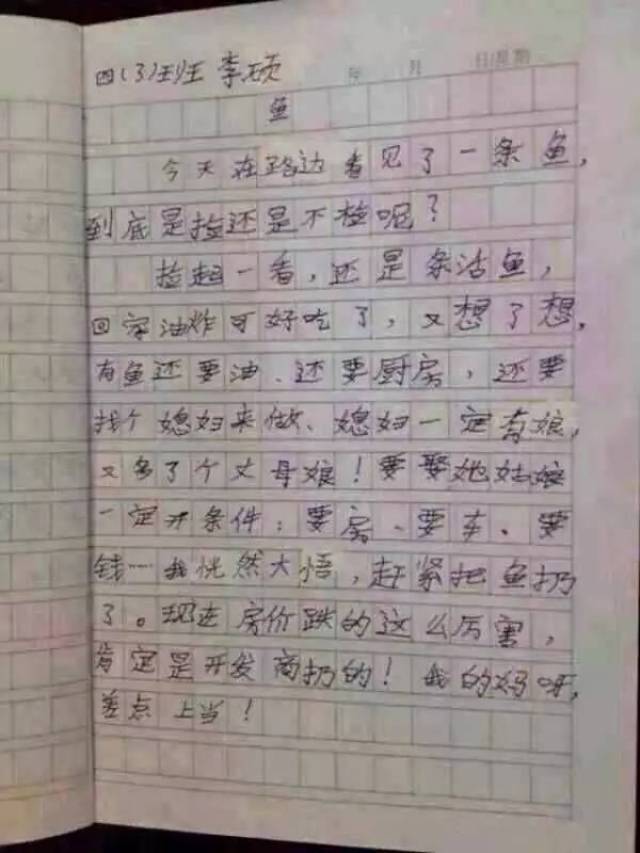 四(3)班 李硕
年 月 日星期
鱼
今天在路边看见了一条鱼,
到底是捡还是不捡呢?
捡起一看,还是条活鱼,
回家油炸可好吃了,又想了想,
有鱼还要油、还要厨房,还要
找个媳妇来做、媳妇一定有娘,
又多了个丈母娘!要娶她姑娘
一定开条件:要房、要车、要
钱……我恍然大悟,赶紧把鱼扔
了。现在房价跌的这么厉害,
肯定是开发商扔的!我的妈呀,
差点上当!